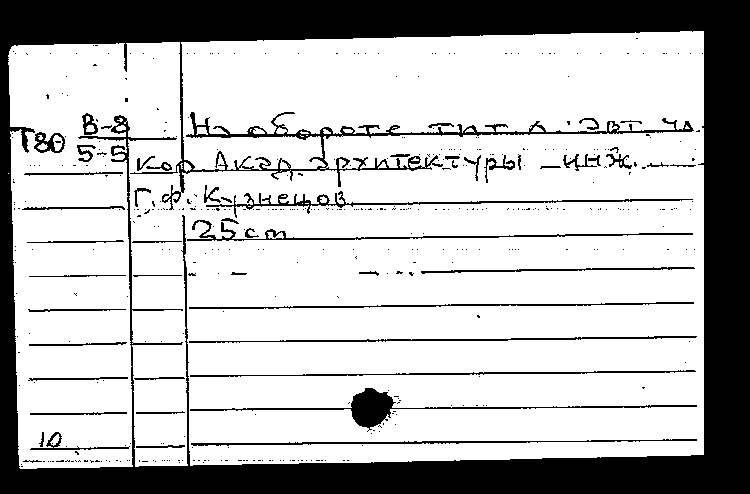 Т80 В-8 На обороте тит л.: авт. чл.
5-5 кор Акад. архитектуры инж.
Г.Ф. Кузнецов
25 cm
10